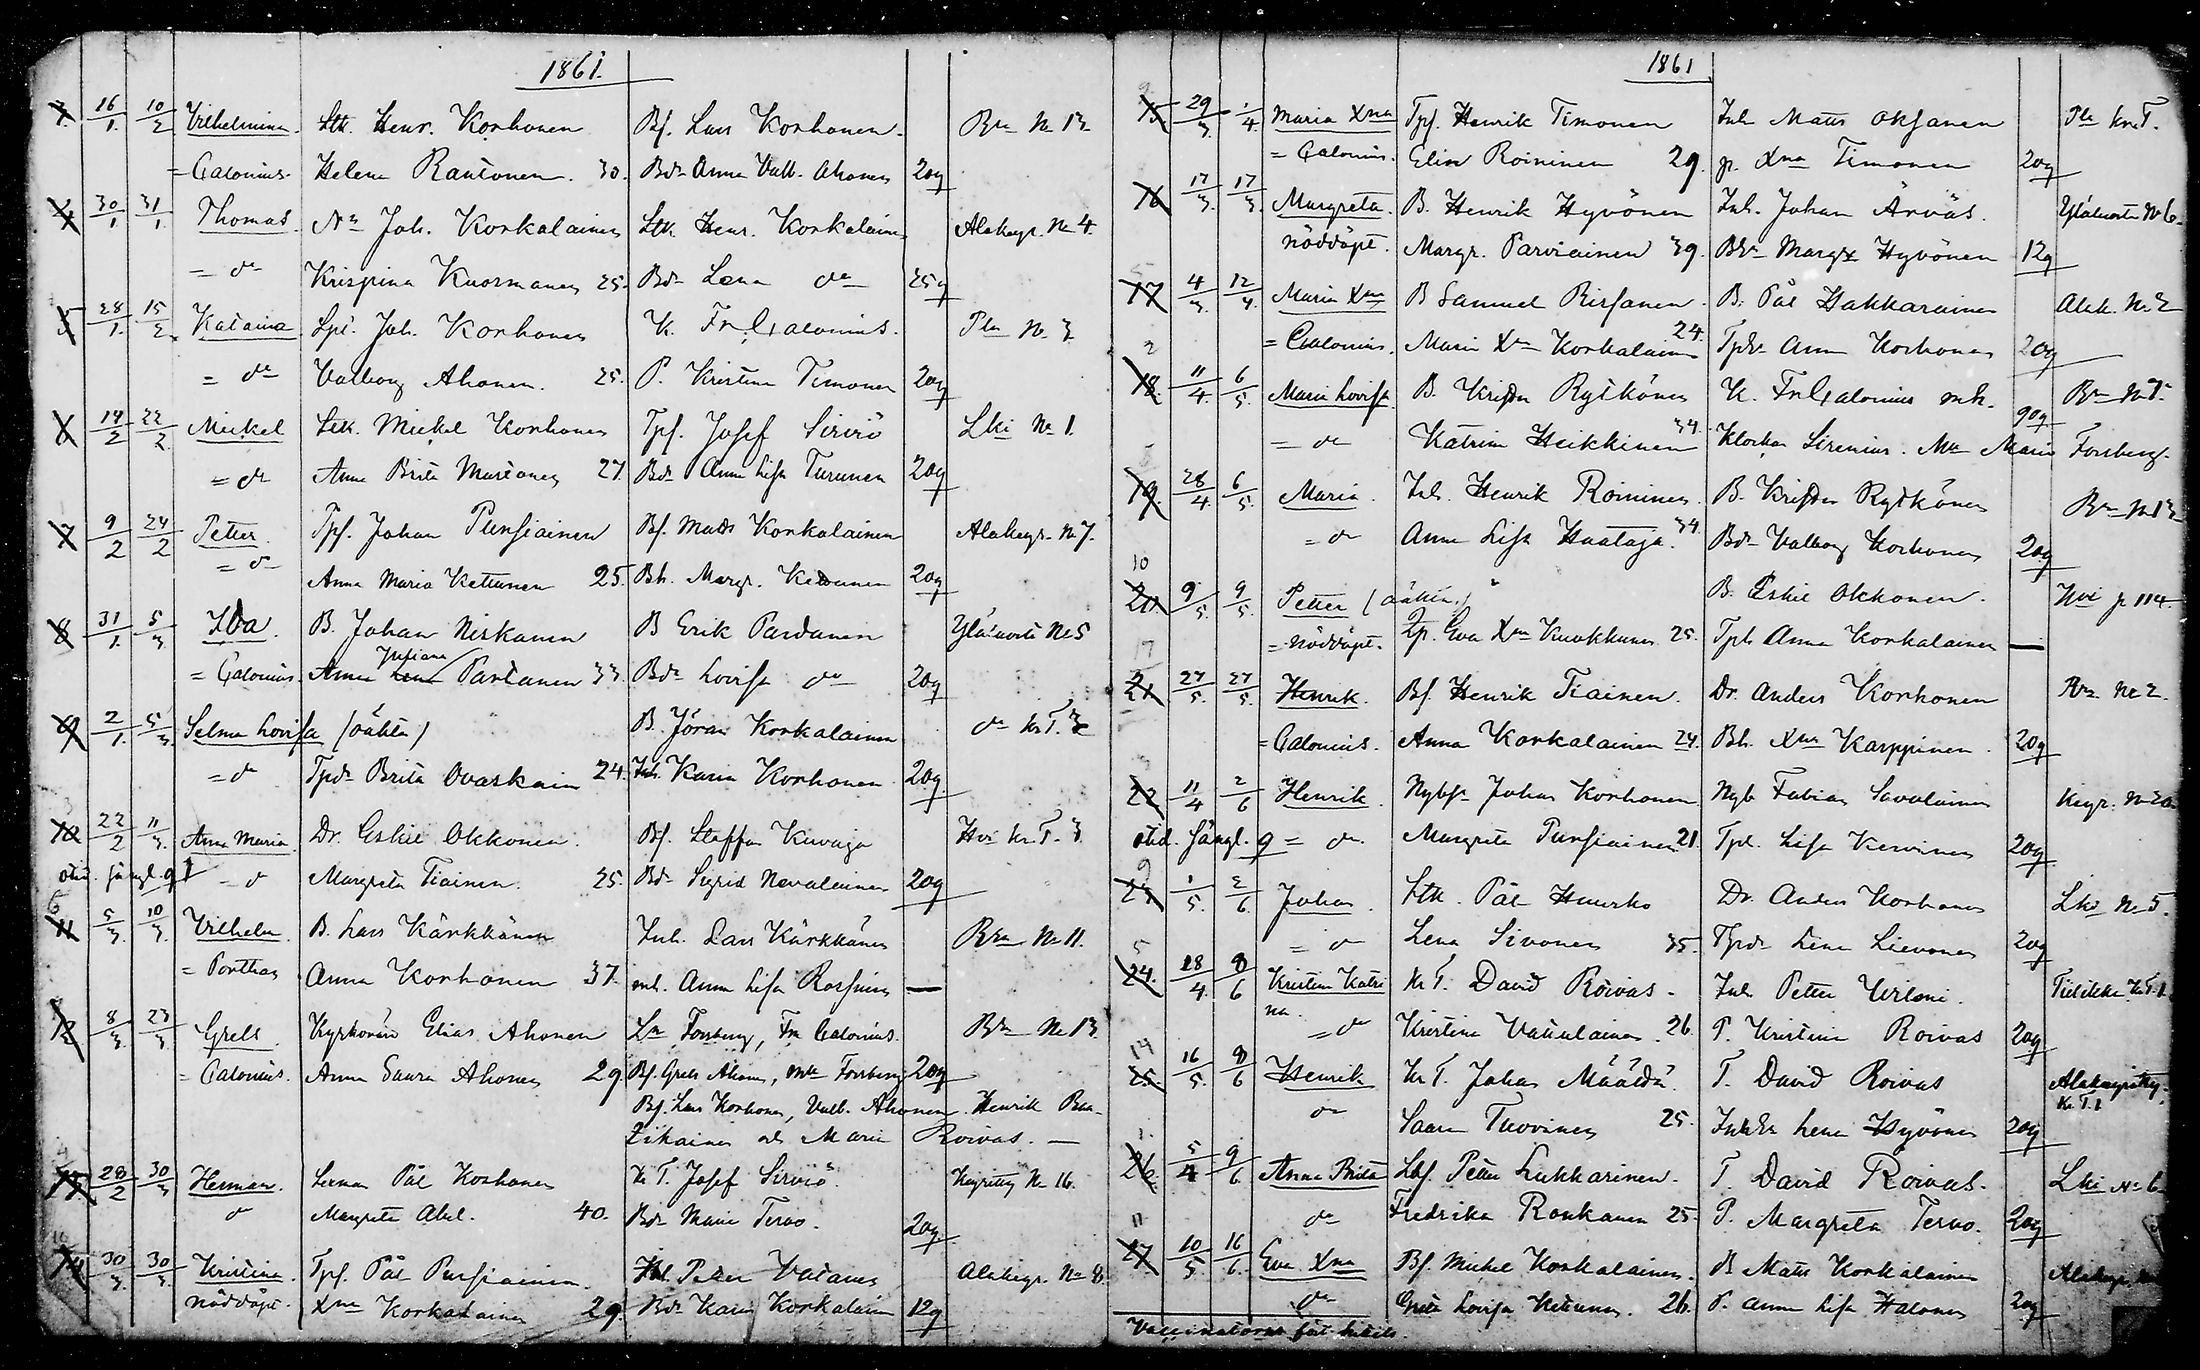 1861.
3. 16/1. 10/2 Vilhelmina. Stk. Henr. Korhonen Bf. Lars Korhonen. Bra No 13
= Calonius. Helena Rautonen. 30. Bdr Anna Valb. Ahonen 20g
4 30/1. 31/1. Thomas. Joh. Korkalainen Stk. Henr. Korkalainen Alakeyr. No 4.
= do Krispina Kuosmanen 25. Bdr Lena do 25g
5 28/1. 15/2. Kataina Spt. Joh. Korhonen K. Fr. Calonius. Pla No 3
= do Valborg Ahonen. 25. P. Kristina Timonen 20g
6 14/2 22/2. Mickel Stk. Mickel Korhonen Tpf. Josef Sirviö Lki No 1.
= do Anna Brita Mustonen 27. Bdr Anna Lisa Turunen 20g
7 9/2 24/2 Petter. Tpf. Johan Pursiainen Bf. Matts Korkalainen Alakeyr. No 7.
= do Anna Maria Kettunen 25. Bh. Margr. Kettunen 20g
8 31/1. 5/3 Ida. B. Johan Niskanen B Erik Partanen Yläluosta No 5
= Calonius. Anna Juliana Partanen 33. Bdr Lovisa do 20g
9 2/1. 5/3. Selma Lovisa (oäkta) B. Jöran Korkalainen do Kr. T. 3
= do Tpdr Brita Ovaskain 24. Inh. Karin Korhonen 20g.
10 22/2 11/3. Anna Maria. Dr. Eskil Okkonen. Bf. Staffan Kuvaja Hvi Kr. T. 3
otid. sängl. 91 - do Margreta Tiainen. 25. Bdr Sigrid Nevalainen 20g
11 5/3. 10/3. Vilhelm. B. Lars Kärkkäinen Inh. Lars Kärkkäinen Bra No 11.
= Porthan Anna Korhonen 37. mh. Anna Lisa Rossinen —
12 8/3. 23/3. Grels. Kyrkovärd Elias Ahonen Ln Forsberg, Fr. Calonius. Bra No 13.
= Calonius. Anna Saara Ahonen 29. Bf. Grels Ahonen, Mlle Forsberg 20g
Bf. Lars Korhonen, Valb. Ahonen. Henrik Raa-
tikainen och Maria Roivas. —
13 28/2 30/3 Herman. Lexman Pål Korhonen Kr T. Josef Sirviö. Keyritty No 16.
do Margreta Abel. 40. Bdr Maria Tervo. 20g.
14 30/3. 30/3. Kristina. Tpf. Pål Pursiainen. Inh. Peter Vatanen Alakeyr. No 8.
nöddöpt. Xna Korkalainen 29. Bdr Karin Korkalain 12g
1861
15 29/3. 1/4. Maria Xna Tpf. Henrik Timonen Inh. Matts Oksanen Pla Kr. T.
= Calonius. Elin Roininen 29. p. Xna Timonen 20g
16 17/3. 17/3. Margreta. B. Henrik Hyvönen Inh. Johan Arväs. Yläluosta No 6.
nöddöpt. Margr. Parviainen 39. Bdr Margr Hyvönen 12g
17 4/3. 12/4. Maria Xna B Samuel Rissanen. B. Pål Hakkarainen Alak. No 2
= Calonius. Maria Xna Korkalainen 24. Tpdr Anna Korhonen 20g
18. 11/4. 6/5. Maria Lovisa. B. Krister Rytkönen K. Fr. Calonius mh. Bra No 7.
= do Katrina Heikkinen 34. Klockar Sirenius. Mlle Maria Forsberg. 90g
19 28/4. 6/5. Maria. Inh. Henrik Roininen. B. Krister Rytkönen Bra No 13
= do Anna Lisa Haataja. 34. Bdr Valborg Korhonen 20g
20. 9/5. 9/5. Petter (oäkta.) B. Eskil Okkonen. Hvi p 114.
= nöddöpt. Ip. Eva Xna Kuokkanen 25. Tph Anna Korkalainen —
21. 27/5. 27/5. Henrik. Bf. Henrik Tiainen. Dr. Anders Korhonen Bra No 2.
= Calonius. Anna Korkalainen 24. Bh. Xna Karppinen. 20g
22 11/4 2/6 Henrik. Nybf. Johan Korhonen Nyb Fabian Savolainen Keyr. No 20
otid. sängl. 9 = do Margreta Pursiainen 21. Tpd. Lisa Kervinen 20g
23 1/5. 2/6. Johan. Stk. Pål Huusko Dr. Anders Korhonen Lki No 5.
= do Lena Sivonen 35. Tpdr Lena Lievonen 20g
24. 28/4. 8/6 Kristina Katri Kr T. David Roivas. Inh Petter Uiloni. Tiilikka Kr T. 1
na. = do Kristina Vatulainen. 26. P. Kristina Roivas 20g
25. 16/5. 8/6 Henrik Kr T. Johan Määttä T. David Roivas Alakeyritty. Kr. T. 1
do Saara Tuovinen 25. Inhdr Lena Hyvönen 20g
26 5/4 9/6. Anna Brita Lbf. Petter Lukkarinen. T. David Roivas. Lki No 6.
do Fredrika Ronkanen 25. P. Margreta Tervo. 20g
27. 10/5 16/6. Eva Xna Bf. Mickel Korkalainen. B Matts Korkalainen Alakeyr.
do Greta Lovisa Ketunen. 26. P. Anna Lisa Halonen 20g
Vaccinatoren fått